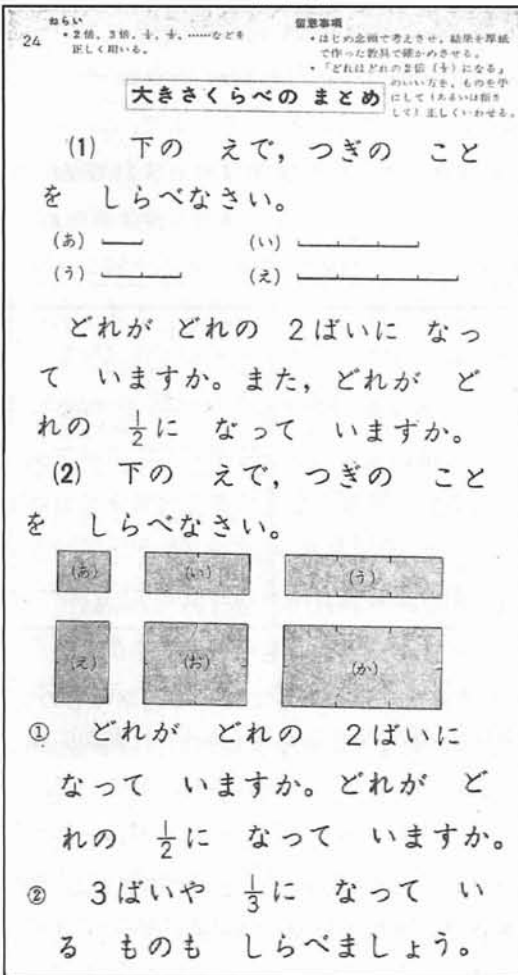 24
ねらい
・2倍，3倍，1/2，1/3，……などを
正しく用いる。
留意事項
・はじめ念頭で考えさせ，結果を厚紙
で作った教具で確かめさせる。
・「どれはどれの2倍（1/2）になる」
のいい方を，ものを手
にして（あるいは指さ
して）正しくいわせる。
大きさくらべの まとめ
(1) 下の えで，つぎの こと
を しらべなさい。
(あ) (い)
(う) (え)
どれが どれの 2ばいに なっ
て いますか。また，どれが ど
れの 1/2に なって いますか。
(2) 下の えで，つぎの こと
を しらべなさい。
(あ) (い) (う)
(え) (お) (か)
① どれが どれの 2ばいに
なって いますか。どれが ど
れの 1/2に なって いますか。
② 3ばいや 1/3に なって い
る ものも しらべましょう。